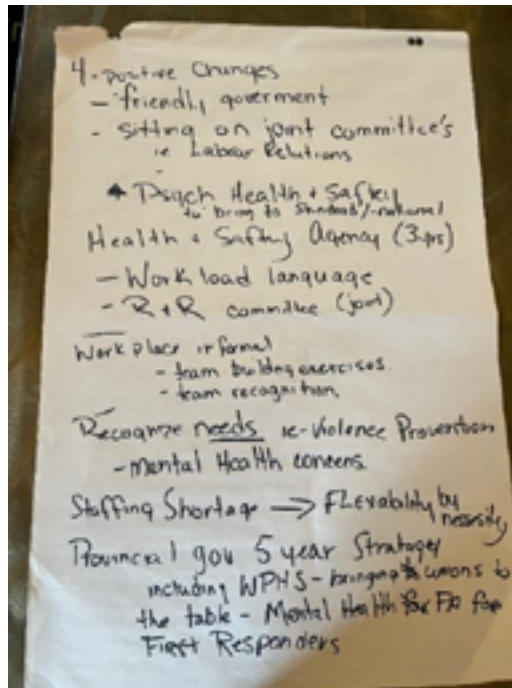 4 - positive Changes
- friendly goverment
- sitting on joint committee's
ie Labour Relations
* Psych Health + Saftey
to bring to standard/-national
Health + Saftey Agency (3yrs)
- Work load language
- R + R committee (joint)
Work place informal
- team building exercises
- team recognition
Recognize needs ie - Violence Prevention
- Mental Health concerns
Staffing Shortage → FLexability by
nessity
Provincial gov 5 year Strategy
including WPHS - bringing unions to
the table - Mental Health for
First Responders